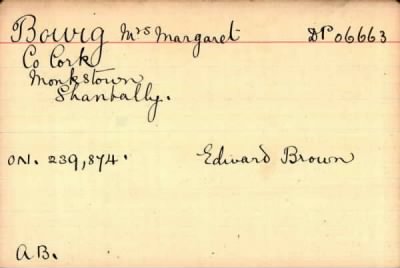 Bowig Mrs Margaret DP 06663
Co Cork
Monkstown
Shanbally.
ON. 239,874. Edward Brown
A.B.